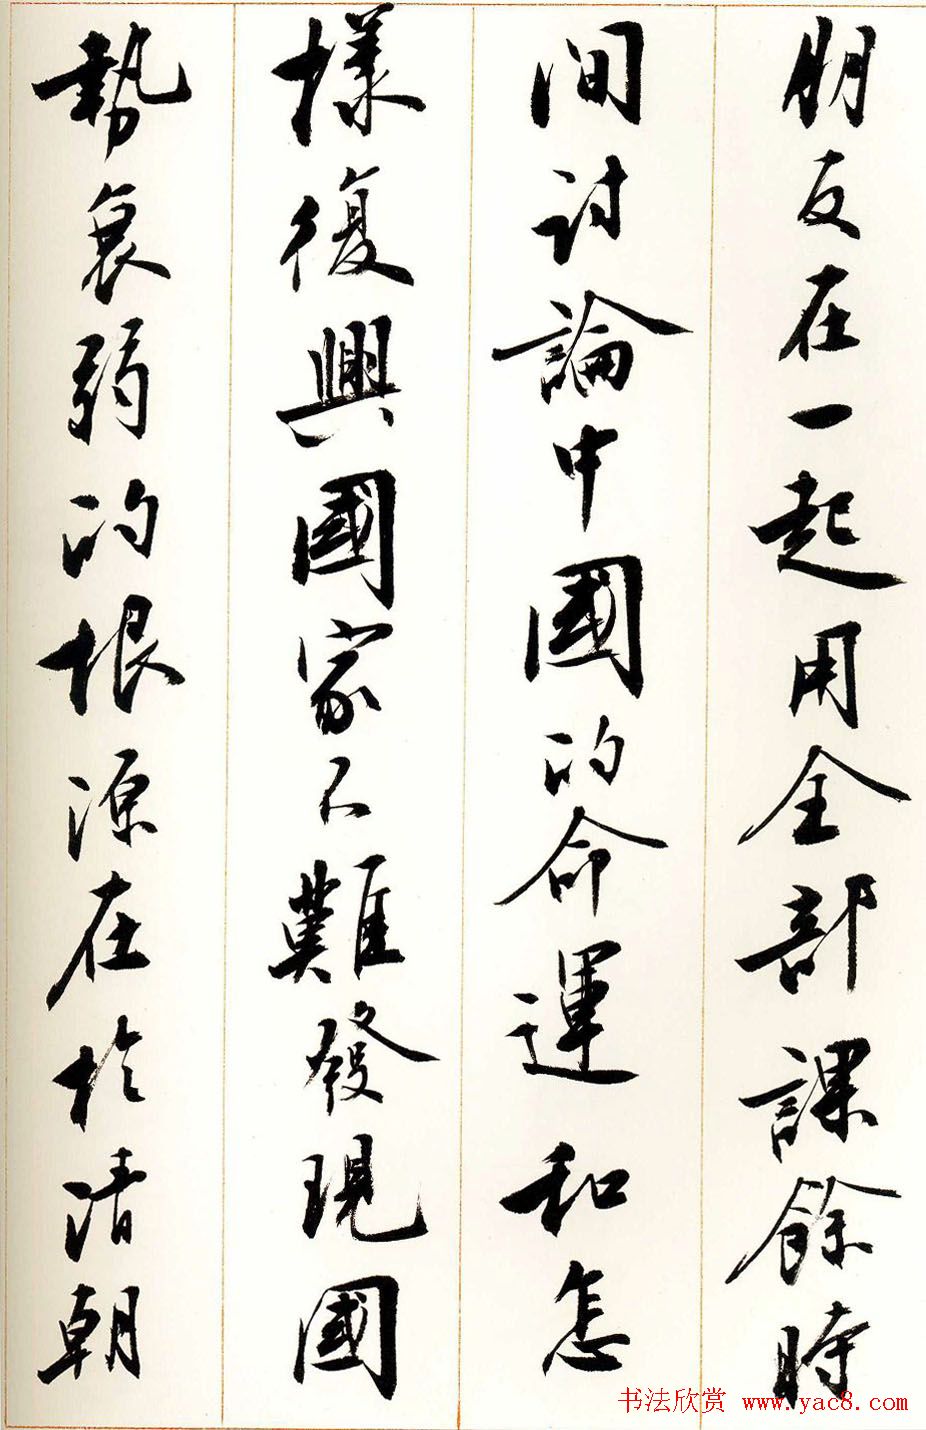 朋友在一起用全部課餘時
間討論中國的命運和怎
樣復興國家不難發現國
勢衰弱的根源在於清朝
书法欣赏 www.yac8.com